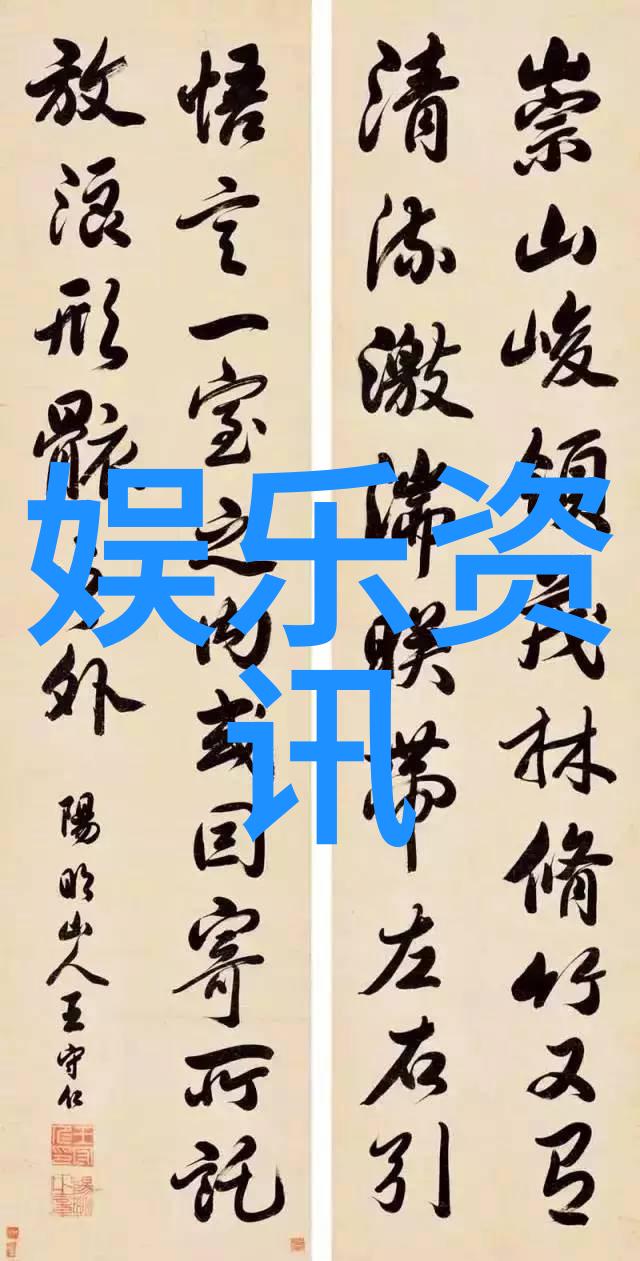 崇山峻領茂林脩竹又有
清流激湍暎帶左右引
悟言一室之內或因寄所託
放浪形骸之外
陽明山人王守仁
娱乐资
讯